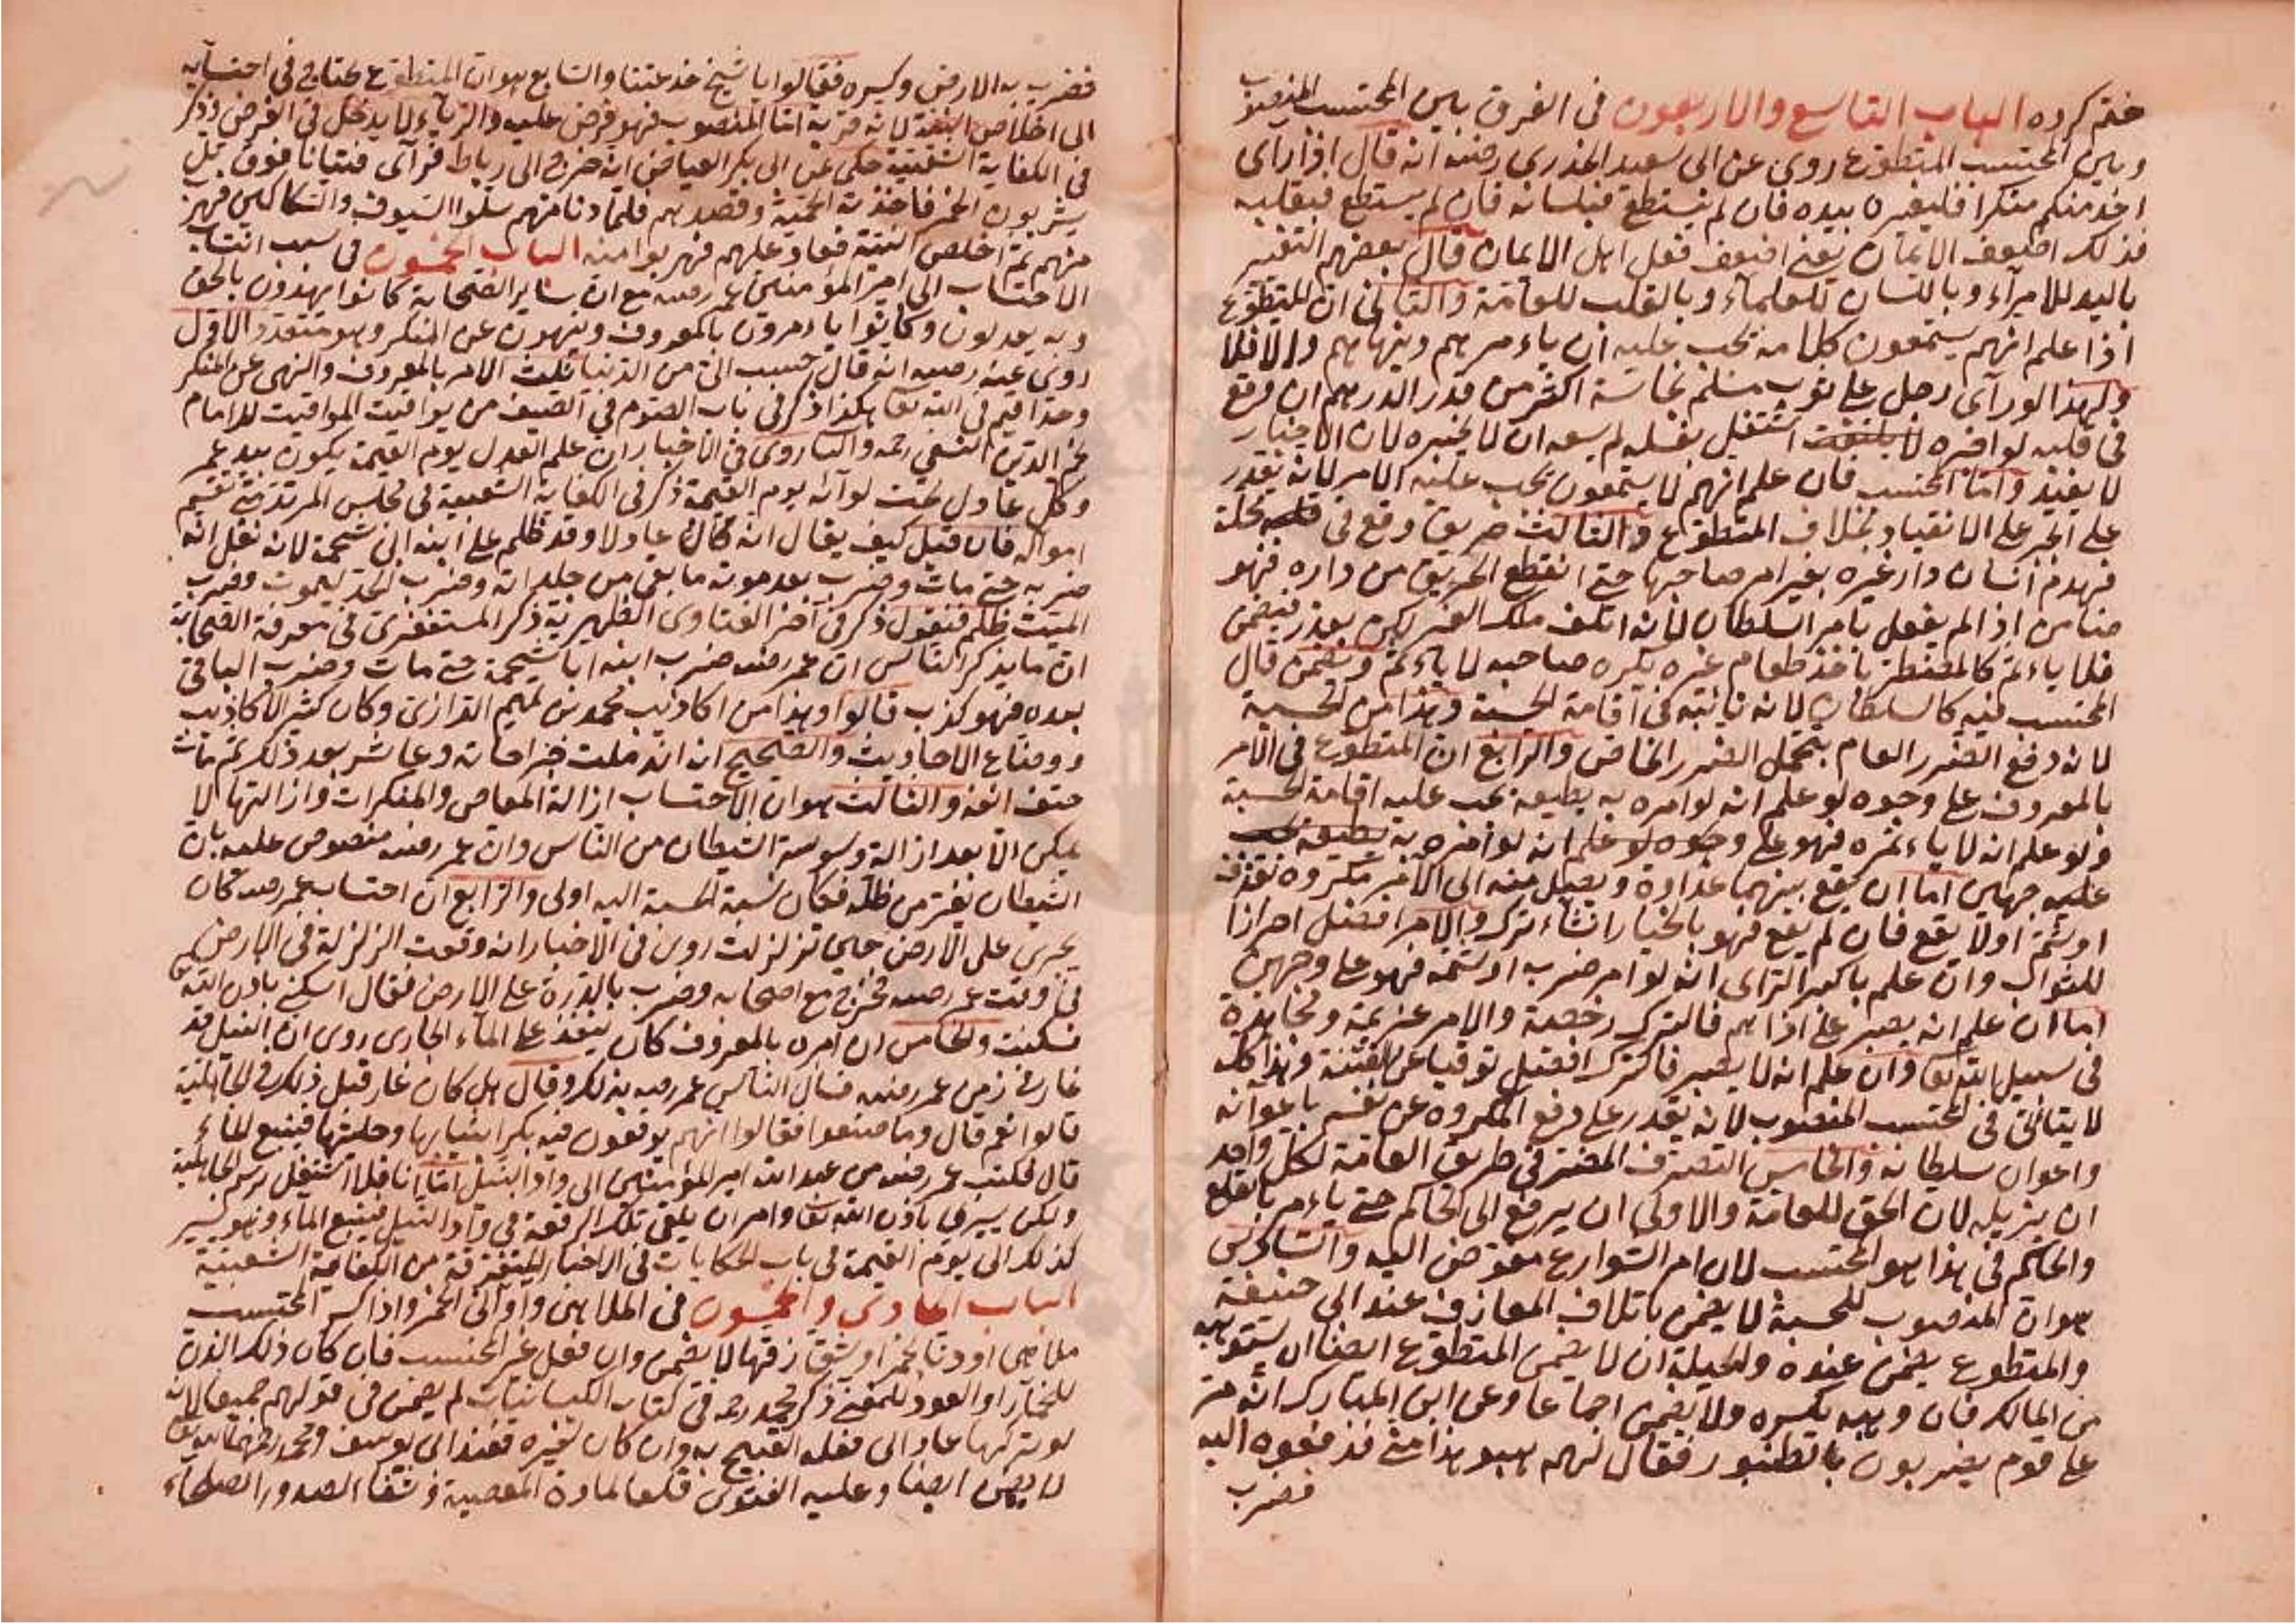 ختم كرده الباب التاسع والاربعون فى الفرق بين المحتسب المنصوب
وبين المحتسب المتطوع روى عن ابى سعيد الخدرى رضه انه قال اذا راى
احد منكم منكرا فليغيره بيده فان لم يستطع فبلسانه فان لم يستطع فبقلبه
فذلك اضعف الايمان يعنى اضعف فعل اهل الايمان قال بعضهم التغيير
باليد للامرآء وباللسان للعلمآء وبالقلب للعامة والثانى ان المتطوع
اذا علم انهم يستمعون كلامه يجب عليه ان ياءمرهم وينهاهم والا فلا
ولهذا لو رآى رجل على ثوب مسلم نجاسة اكثر من قدر الدرهم ان وقع
فى قلبه لو اخبره اشتغل بغسله لم يسعه ان لا يخبره لان الاخبار
لا يفيد واما المحتسب فان علم انهم لا يستمعون يجب عليه الامر لانه يقدر
على الجبر على الانقياد بخلاف المتطوع والثالث حريق وقع فى محلة
فهدم انسان دار غيره بغير امر صاحبها حتى انقطع الحريق من داره فهو
ضامن اذا لم يفعل بامر السلطان لانه اتلف ملك الغير لكن بعذر فيضمن
فلا ياءثم كالمضطر ياخذ طعام غيره بكره صاحبه لا ياءثم ويضمن قال
المحتسب فيه كالسلطان لانه نائبه فى اقامة الحسبة وهذا من الحسبة
لانه دفع الضرر العام بتحمل الضرر الخاص والرابع ان المتطوع فى الامر
بالمعروف على وجوه لو علم انه لو امره به يطيعه يجب عليه اقامة الحسبة
ولو علم انه لا ياءتمره فهو على وجوه لو علم انه لو اخبره به يطيعه يجب
عليه جهين اما ان يقع بينهما عداوة ويصل منه الى الآمر مكروه بقذف
او شتم اولا يقع فان لم يقع فهو بالخيار ان شاء ترك والامر افضل احرازا
للثواب وان علم باكبر الراى انه لو امر ضرب او شتمه فهو على وجهين
اما ان علم انه يصبر على اذاهم فالترك رخصة والامر عزيمة ومجاهدة
فى سبيل الله تعا وان علم انه لا يصبر فالترك افضل توقيا عن الفتنة وهذا كله
لا يتاتى فى المحتسب المنصوب لانه يقدر على دفع المكروه عن نفسه باعوانه
واعوان سلطانه والخامس التصرف المضر فى طريق العامة لكل واحد
ان يزيله لان الحق للعامة والاولى ان يرفع الى الحاكم حتى ياءمر بالقلع
والحاكم فى هذا هو المحتسب لان امر الشوارع مفوض اليه والسادس
هو ان المنصوب للحسبة لا يضمن باتلاف المعازف عند ابى حنيفة
والمتطوع يضمن عنده والحيلة ان لا يضمن المتطوع ايضا ان يستوهبه
من المالك فان وهبه يكسره ولا يضمن اجماعا وعن ابن المبارك انه مر
على قوم يضربون بالطنبور فقال لهم هبو هذا منى فدفعوه اليه
فضرب
فضرب به الارض وكسره فقالوا يا شيخ خدعتنا والسابع هو ان المتطوع يحتاج فى احتسابه
الى اخلاص النية لانه قربة اما المنصوب فهو فرض عليه والريآء لا يدخل فى الفرض ذكر
فى الكفاية الشعبية حكى عن ابى بكر العياضى انه خرج الى رباط فرآى فتيانا فوق تل
يشربون الخمر فاخذته الحمية وقصدهم فلما دنا منهم سلوا السيوف والسكاكين فهرب
منهم ثم اخلص النية فعاد عليهم فهربوا منه الباب الخمسون فى سبب انتساب
الاحتساب الى امير المؤمنين عمر رضه مع ان ساير الصحابة كانوا يهدون بالحق
وبه يعدلون وكانوا ياءمرون بالمعروف وينهون عن المنكر وهو متعدد الاول
روى عنه رضه انه قال حبب الى من الدنيا ثلث الامر بالمعروف والنهى عن المنكر
وحد اقيم فى الله تعا هكذا ذكر فى باب الصوم فى الصيف من يواقيت المواقيت للامام
نجم الدين النسفى رحمه والثا روى فى الاخبار ان علم العدل يوم القيمة يكون بيد عمر
وكل عادل تحت لوآئه يوم القيمة ذكر فى الكفاية الشعبية فى مجلس المرتد متى تقسم
امواله فان قيل كيف يقال انه كان عادلا وقد ظلم على ابنه ابى شحمة لانه نقل انه
ضربه حتى مات وضرب بعد موته ما بقى من جلداته وضرب الحد ليموت وضرب
الميت ظلم فنقول ذكر فى آخر الفتاوى الظهيرية ذكر المستغفرى فى معرفة الصحابة
ان ما يذكر الناس ان عمر رضه ضرب ابنه ابا شحمة حتى مات وضرب الباقى
بعده فهو كذب قالوا وهذا من اكاذيب محمد بن تميم الرازى وكان كثير الاكاذيب
ووضاع الاحاديث والصحيح انه اندملت جراحاته وعاش بعد ذلك ثم مات
حتف انفه والثالث هو ان الاحتساب ازالة المعاصى والمنكرات وازالتها لا
يمكن الا بعد ازالة وسوسة الشيطان من الناس وان عمر رضه منصوص عليه بان
الشيطان يفر من ظله فكان نسبة الحسبة اليه اولى والرابع ان احتساب عمر رضه كان
يجرى على الارض حين تزلزلت روى فى الاخبار انه وقعت الزلزلة فى الارض
فى وقت عمر رضه فخرج مع اصحابه وضرب بالدرة على الارض فقال اسكنى باذن الله تعا
فسكنت والخامس ان امره بالمعروف كان ينفذ على المآء الجارى روى ان النيل قد
غار فى زمن عمر رضه فسال الناس عمر رضه بذلك وقال هل كان غار قبل ذلك فى الجاهلية
قالوا نعم قال وما صنعوا فقالوا انهم يوقعون فيه بكرا بثيابها وحليتها فينبع الماء
قال فكتب عمر رضه من عبد الله امير المؤمنين الى واد النيل اما انا فلا اشتغل برسم الجاهلية
ولكن يسرى باذن الله تعا وامر ان يلقى تلك الرقعة فى واد النيل فينبع الماء وهو يسير
كذلك الى يوم القيمة فى باب الحكايات فى الاخبار المتفرقة من الكفاية الشعبية
الباب الحادى والخمسون فى الملاهى واوانى الخمر واذا كسر المحتسب
ملاهى او دنا لخمر او شق زقها لا يضمن وان فعل غير المحتسب فان كان ذلك الدن
للخمار او العود للمغنى ذكر محمد رحمه فى كتاب الكيسانيات لم يضمن فى قولهم جميعا لانه
لو تركها عاد الى فعله القبيح به وان كان لغيره فعند ابى يوسف ومحمد رحمهما الله تعا
لا يضمن ايضا وعليه الفتوى قلعا لمادة المعصية وشفاء لصدور الصلحاء